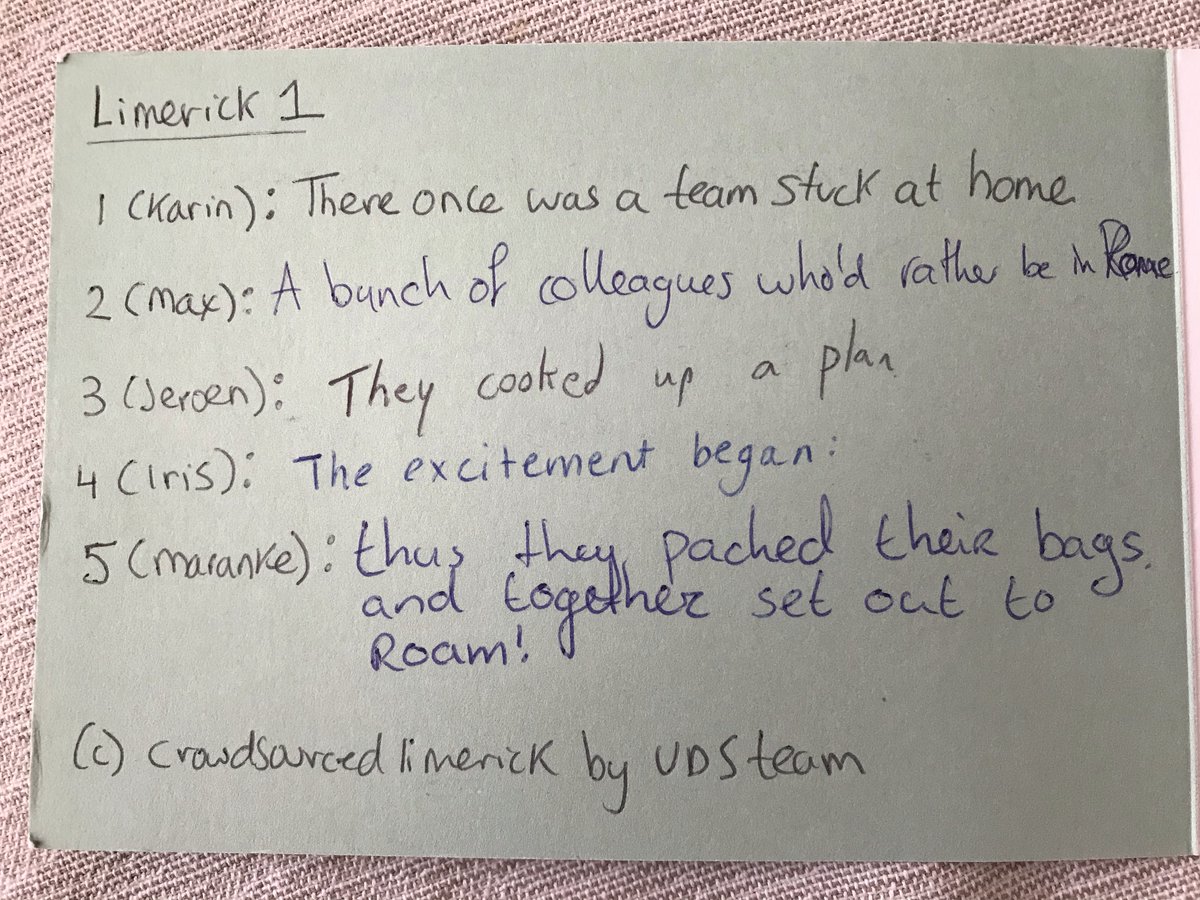 Limerick 1
1 (Karin): There once was a team stuck at home
2 (Max): A bunch of colleagues who'd rather be in Rome
3 (Jeroen): They cooked up a plan
4 (Iris): The excitement began:
5 (Maranke): thus they packed their bags.
and together set out to
Roam!
(c) crowdsourced limerick by UDS team